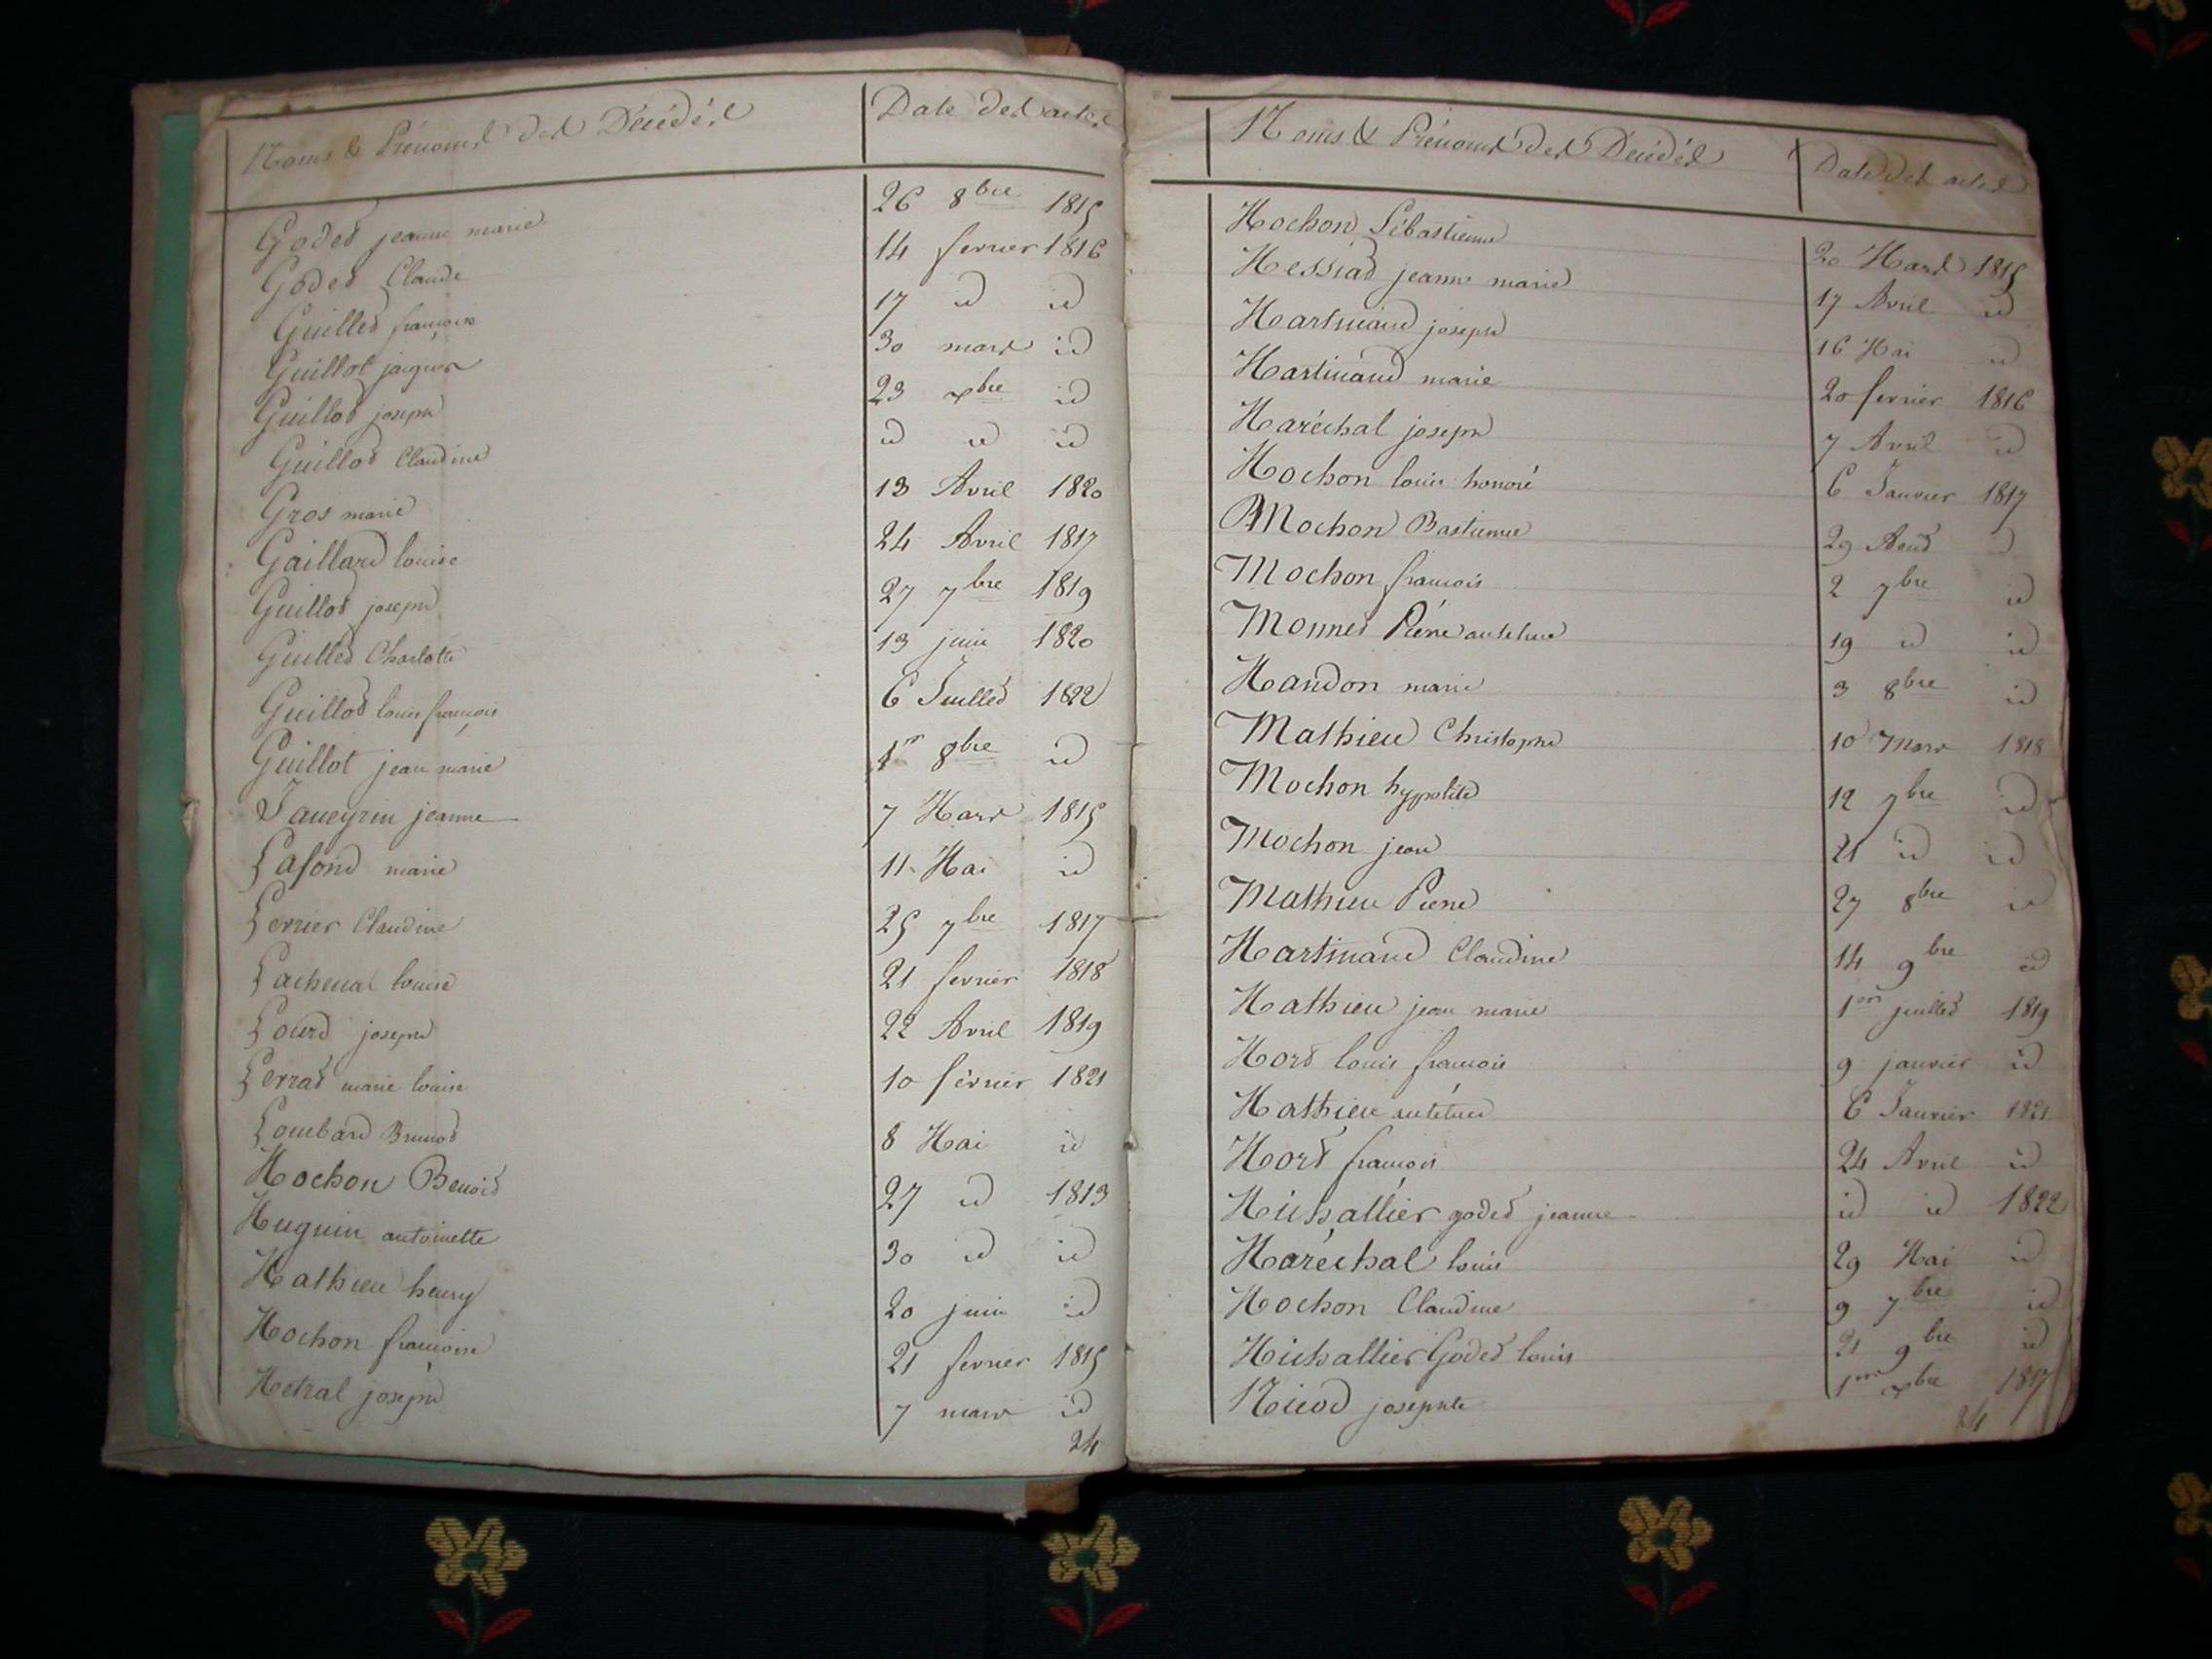 Noms & Prénoms des Décédés Date des actes
Godet jeanne marie 26 8bre 1815
Godet Claude 14 fevrier 1816
Guillet françois 17 id id
Guillot jacques 30 mars id
Guillot joseph 23 xbre id
Guillot Claudine id id id
Gros marie 13 Avril 1820
Gaillard louise 24 Avril 1817
Guillot joseph 27 7bre 1819
Guillet Charlotte 13 juin 1820
Guillot louis françois 6 Juillet 1822
Guillot jean marie 1r 8bre id
Janeyrin jeanne 7 Mars 1815
Lafond marie 11 Mai id
Lerrier Claudine 25 7bre 1817
Lachenal louise 21 fevrier 1818
Lourd joseph 22 Avril 1819
Lerrat marie louise 10 février 1821
Lombard Brunot 8 Mai id
Mochon Benoit 27 id 1813
Muguin antoinette 30 id id
Mathieu henry 20 juin id
Mochon françoise 21 fevrier 1815
Metral joseph 7 mars id
24
Noms & Prénoms des Décédés Date des actes
Mochon Sébastienne 20 Mars 1815
Messiat jeanne marie 17 Avril id
Martinand joseph 16 Mai id
Martinand marie 20 fevrier 1816
Maréchal joseph 7 Avril id
Mochon louis honoré 6 Janvier 1817
Mochon Bastienne 29 Aout id
Mochon françois 2 7bre id
Monnet Pierre anthelme 19 id id
Mandon marie 3 8bre id
Mathieu Christophe 10 Mars 1818
Mochon hypolite 12 7bre id
Mochon jean 21 id id
Mathieu Pierre 27 8bre id
Martinand Claudine 14 9bre id
Mathieu jean marie 1er juillet 1819
Mort louis françois 9 janvier id
Mathieu anthelme 6 Janvier 1821
Mort françois 24 Avril id
Michallier godet jeanne id id 1822
Maréchal louis 29 Mai id
Mochon Claudine 9 7bre id
Michallier Godet louis 21 9bre id
Nicod josephte 1er xbre 1817
24